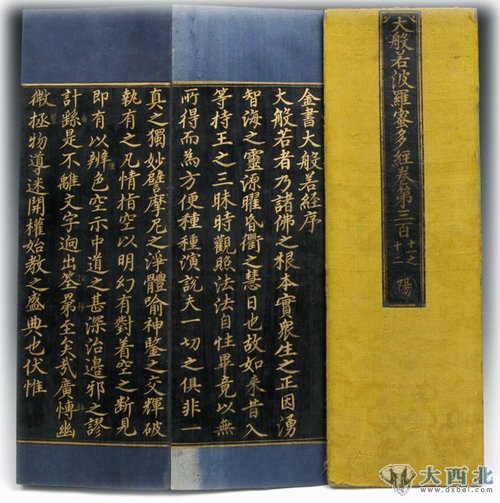 大般若波羅蜜多經卷第三百
十一之
十二
陽
金書大般若經序
大般若者乃諸佛之根本實衆生之正因湧
智海之靈源曜昏衢之慧日也故如来昔入
等持王之三昧時觀照法法自性畢竟以無
所得而為方便種種演說夫一切之俱非一
真之獨妙譬摩尼之淨體喻神鑒之交輝破
執有之凡情指空以明幻有對着空之断見
即有以辨色空示中道之甚深治邊邪之謬
計繇是不離文字迥出筌罤至矣哉廣博幽
微拯物導迷開權始教之盛典也伏惟
大西北
www.dxbei.com